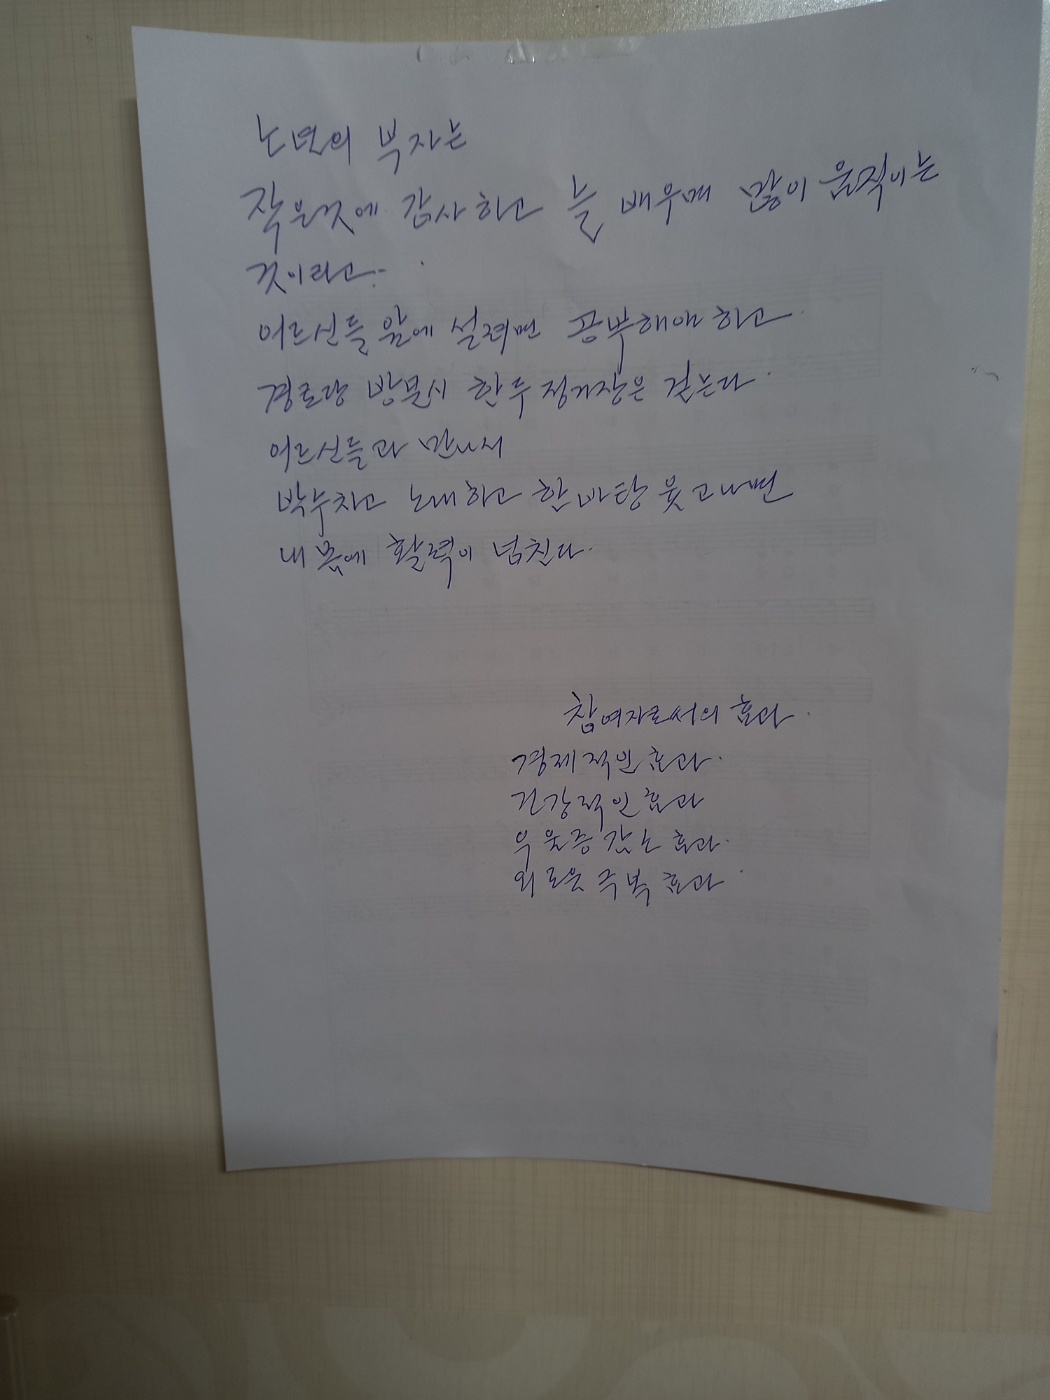 노년의 부자는
작은것에 감사하고 늘 배우며 많이 움직이는
것이라고.
어르신들 앞에 설려면 공부해야하고
경로당 방문시 한두 정거장은 걷는다.
어르신들과 만나서
박수치고 노래하고 한바탕 웃고나면
내 몸에 활력이 넘친다.
참여자로서의 효과.
경제적인 효과.
건강적인 효과
우울증 감소 효과.
외로움 극복 효과.